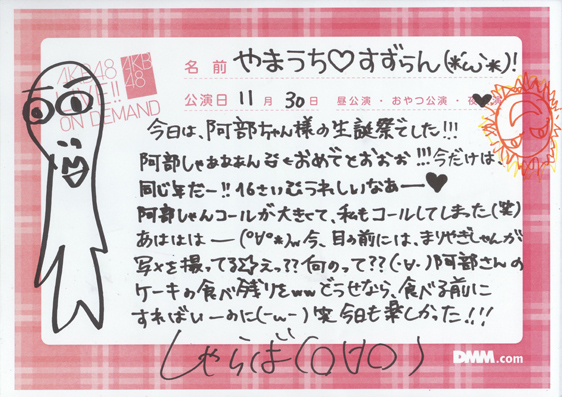 AKB48
LIVE!!
ON DEMAND
AKB
48
名前 やまうち♡すずらん(*´ω`*)!
公演日 11月30日 昼公演・おやつ公演・夜公演
今日は、阿部ちゃん様の生誕祭でした!!!
阿部しゃああぁん おめでとおぉぉ!!!今だけは!
同じ年だー!!16さいむうれしいなあー♥
阿部しゃんコールが大きくて、私もコールしてしまった(笑)
あははは―(°∀°*)w今、目の前には、まりやぎしゃんが
写メを撮ってる☆えっ??何のって??(・∀・)阿部さんの
ケーキの食べ残りをwwどうせなら、食べる前に
すればいーのに(-ω-)笑 今日も楽しかった!!!
しゃらば(0∀0)
DMM.com